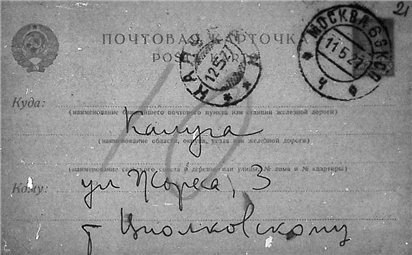 21
ПОЧТОВАЯ КАРТОЧКА
МОСКВА
11.5.27
КАЛУГА
12.5.27
Куда:
(наименование ближайшего почтового пункта или станции железной дороги)
Калуга
(наименование области, округа, уезда или железной дороги)
ул Жореса, 3
(наименование сельского совета и деревни или улицы, № дома и № квартиры)
Кому:
т Циолковскому